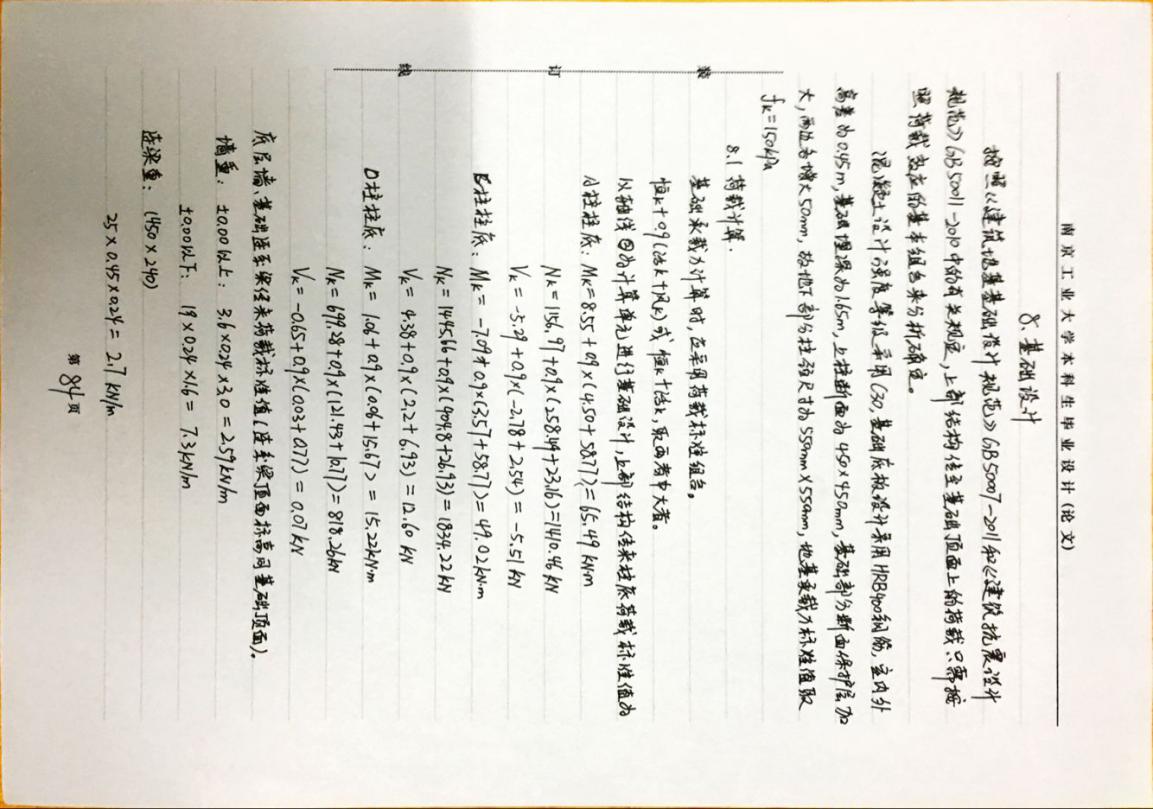 南京工业大学本科生毕业设计(论文)
8. 基础设计
按照《建筑地基基础设计规范》GB50007-2011和《建筑抗震设计
规范》GB50011-2010中的有关规定,上部结构传至基础顶面上的荷载只需按
照荷载效应的基本组合来分析确定。
混凝土设计强度等级采用C30,基础底板设计采用HRB400钢筋,室内外
高差为0.45m,基础埋深为1.65m,上柱断面为450×450mm,基础部分断面保护层加
大,两边各增大50mm,故地下部分柱颈尺寸为550mm×550mm,地基承载力标准值取
fk=150kPa
8.1 荷载计算.
基础承载力计算时,应采用荷载标准组合。
恒k+0.9(活k+风k)或 恒k+活k,取两者中大者。
以轴线⑧为计算单元进行基础设计,上部结构传来柱底荷载标准值为
A柱柱底: Mk=8.55+0.9×(4.50+58.77)=65.49 kN·m
Nk=1156.97+0.9×(258.49+23.16)=1410.46 kN
Vk=-5.29+0.9×(-2.78+2.54)=-5.51 kN
B柱柱底: Mk=-7.09+0.9×(3.57+58.77)=49.02kN·m
Nk=1445.66+0.9×(404.8+26.93)=1834.22 kN
Vk=4.38+0.9×(2.2+6.93)=12.60 kN
D柱柱底: Mk=1.06+0.9×(0.06+15.67)=15.22kN·m
Nk=699.28+0.9×(121.43+10.77)=818.26kN
Vk=-0.65+0.9×(0.03+0.77)=0.07 kN
底层墙、基础连系梁传来荷载标准值(连系梁顶面标高同基础顶面).
墙重: ±0.00以上: 3.6×0.24×3.0=2.59 kN/m
±0.00以下: 19×0.24×1.6=7.3 kN/m
连梁重: (450×240)
25×0.45×0.24=2.7 kN/m
第84页
装
订
线